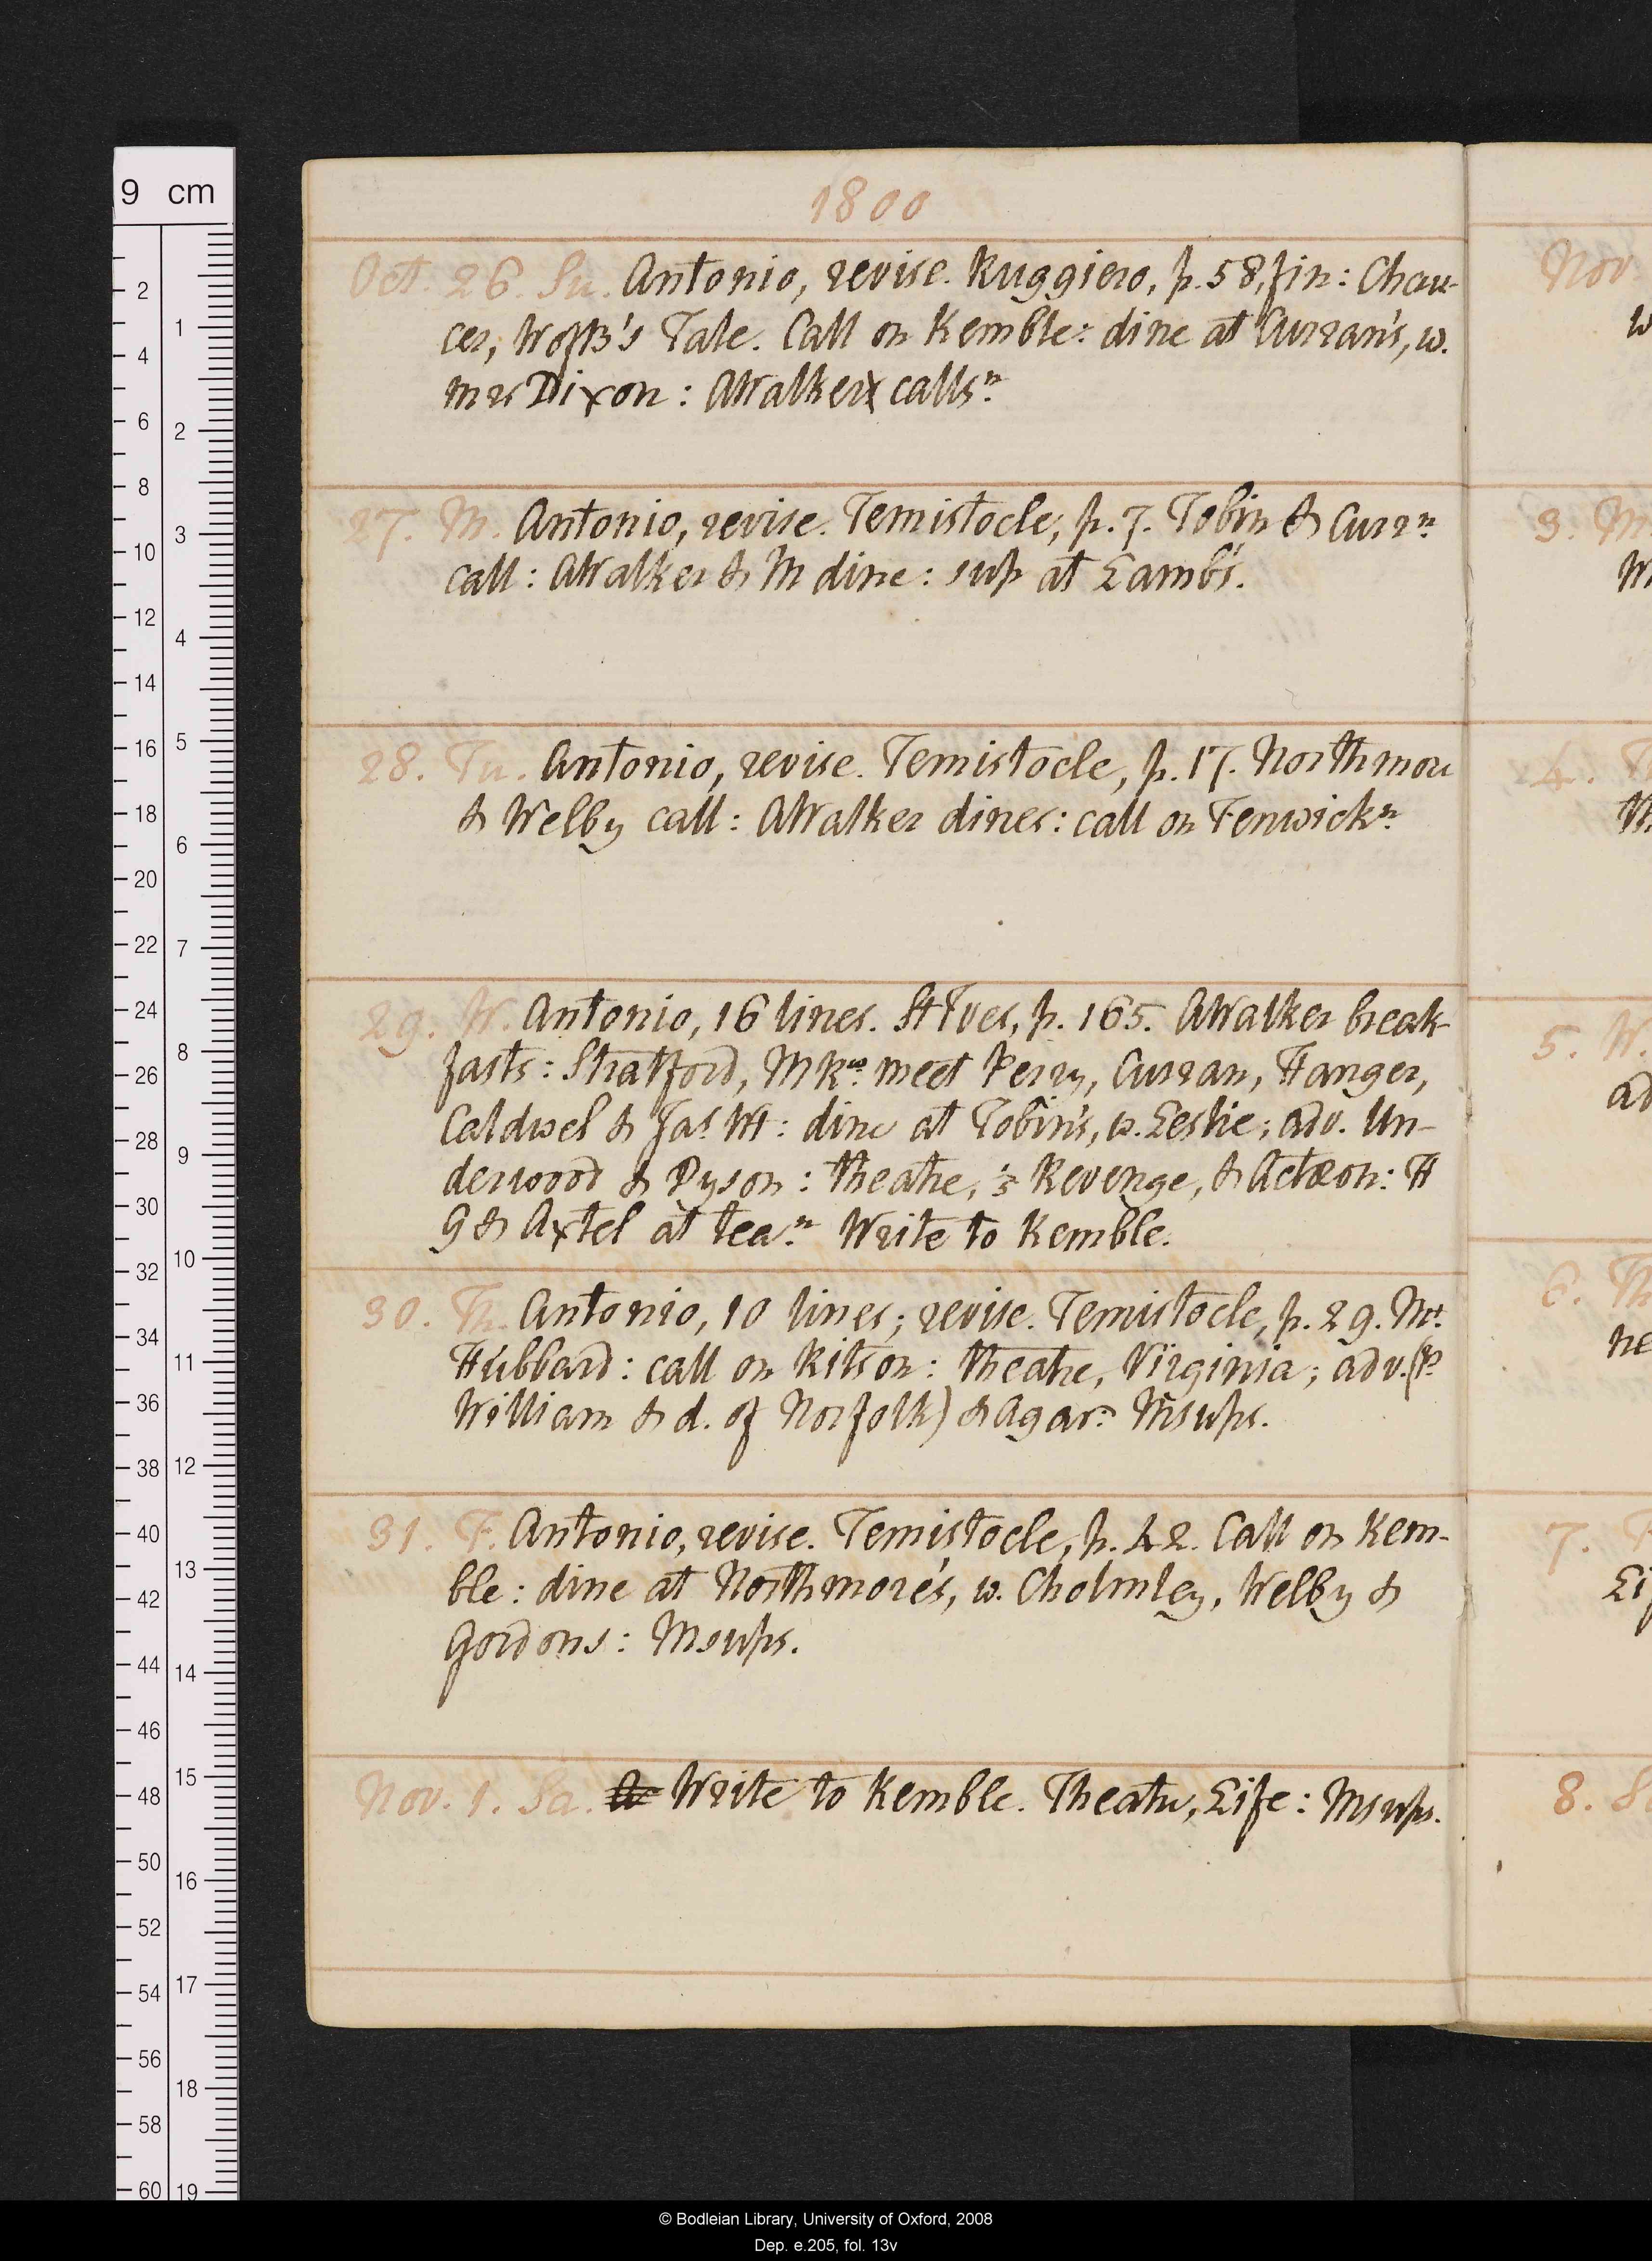 1800
Oct. 26. Su. Antonio, revise. Ruggiero, p. 58, fin: Chau-
cer, Wife of B's Tale. Call on Kemble: dine at Curran's, w.
mrs Dixon: AWalker calls n.
27. M. Antonio, revise. Temistocle, p. 7. Tobin & Curr n.
call: AWalker & M dine: sup at Lamb's.
28. Tu. Antonio, revise. Temistocle, p. 17. Northmore
& Welby call: AWalker dines: call on Fenwick n.
29. W. Antonio, 16 lines. St Ives, p. 165. AWalker break-
fasts: Stratford, meet Perry, Curran, Hanger,
Caldwel & Jas. Wt: dine at Tobin's, w. Leslie; adv. Un-
derwood & Dyson: theatre, Revenge, & Actæon: H
G & Axtel at tea n. Write to Kemble.
30. Th. Antonio, 10 lines; revise. Temistocle, p. 29. Mrs.
Hubbard: call on Ritson: theatre, Virginia; adv. (P.
William & d. of Norfolk) & Agar: M sups.
31. F. Antonio, revise. Temistocle, p. 42. Call on Kem-
ble: dine at Northmore's, w. Cholmley, Welby &
Gordons: M sups.
Nov. 1. Sa. Write to Kemble. Theatre, Life: M sups.
Nov.
w
3. M
4. T
Th
5. W.
ad
6. Th
ne
7. F
Li
8. S
9 cm
2
4
6
8
10
12
14
16
18
20
22
24
26
28
30
32
34
36
38
40
42
44
46
48
50
52
54
56
58
60
1
2
3
4
5
6
7
8
9
10
11
12
13
14
15
16
17
18
19
© Bodleian Library, University of Oxford, 2008
Dep. e.205, fol. 13v